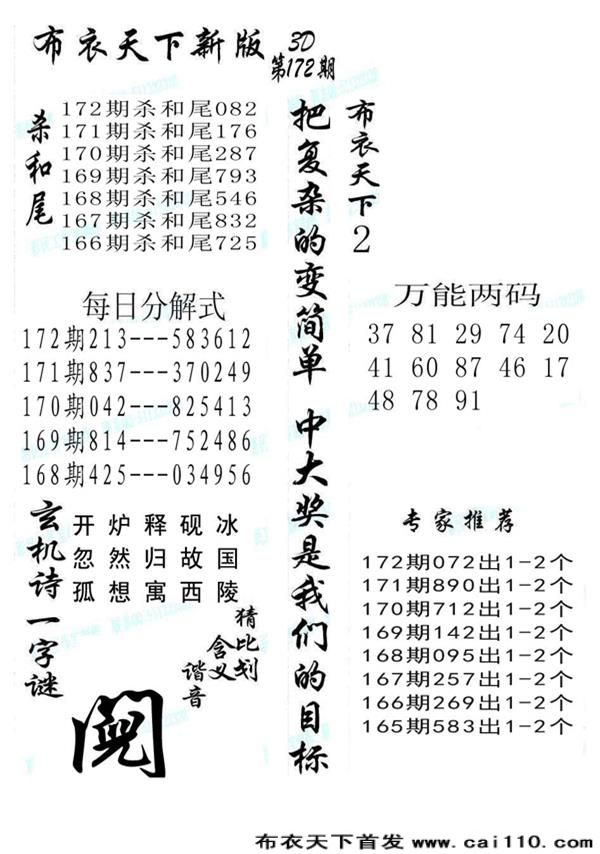 布衣天下新版 3D
第172期
杀和尾
172期杀和尾082
171期杀和尾176
170期杀和尾287
169期杀和尾793
168期杀和尾546
167期杀和尾832
166期杀和尾725
每日分解式
172期213---583612
171期837---370249
170期042---825413
169期814---752486
168期425---034956
玄机诗一字谜
开炉释砚冰
忽然归故国
孤想寓西陵
猜比划
含义
谐音
把复杂的变简单 中大奖是我们的目标
布衣天下2
万能两码
37 81 29 74 20
41 60 87 46 17
48 78 91
专家推荐
172期072出1-2个
171期890出1-2个
170期712出1-2个
169期142出1-2个
168期095出1-2个
167期257出1-2个
166期269出1-2个
165期583出1-2个
布衣天下首发 www.cai110.com